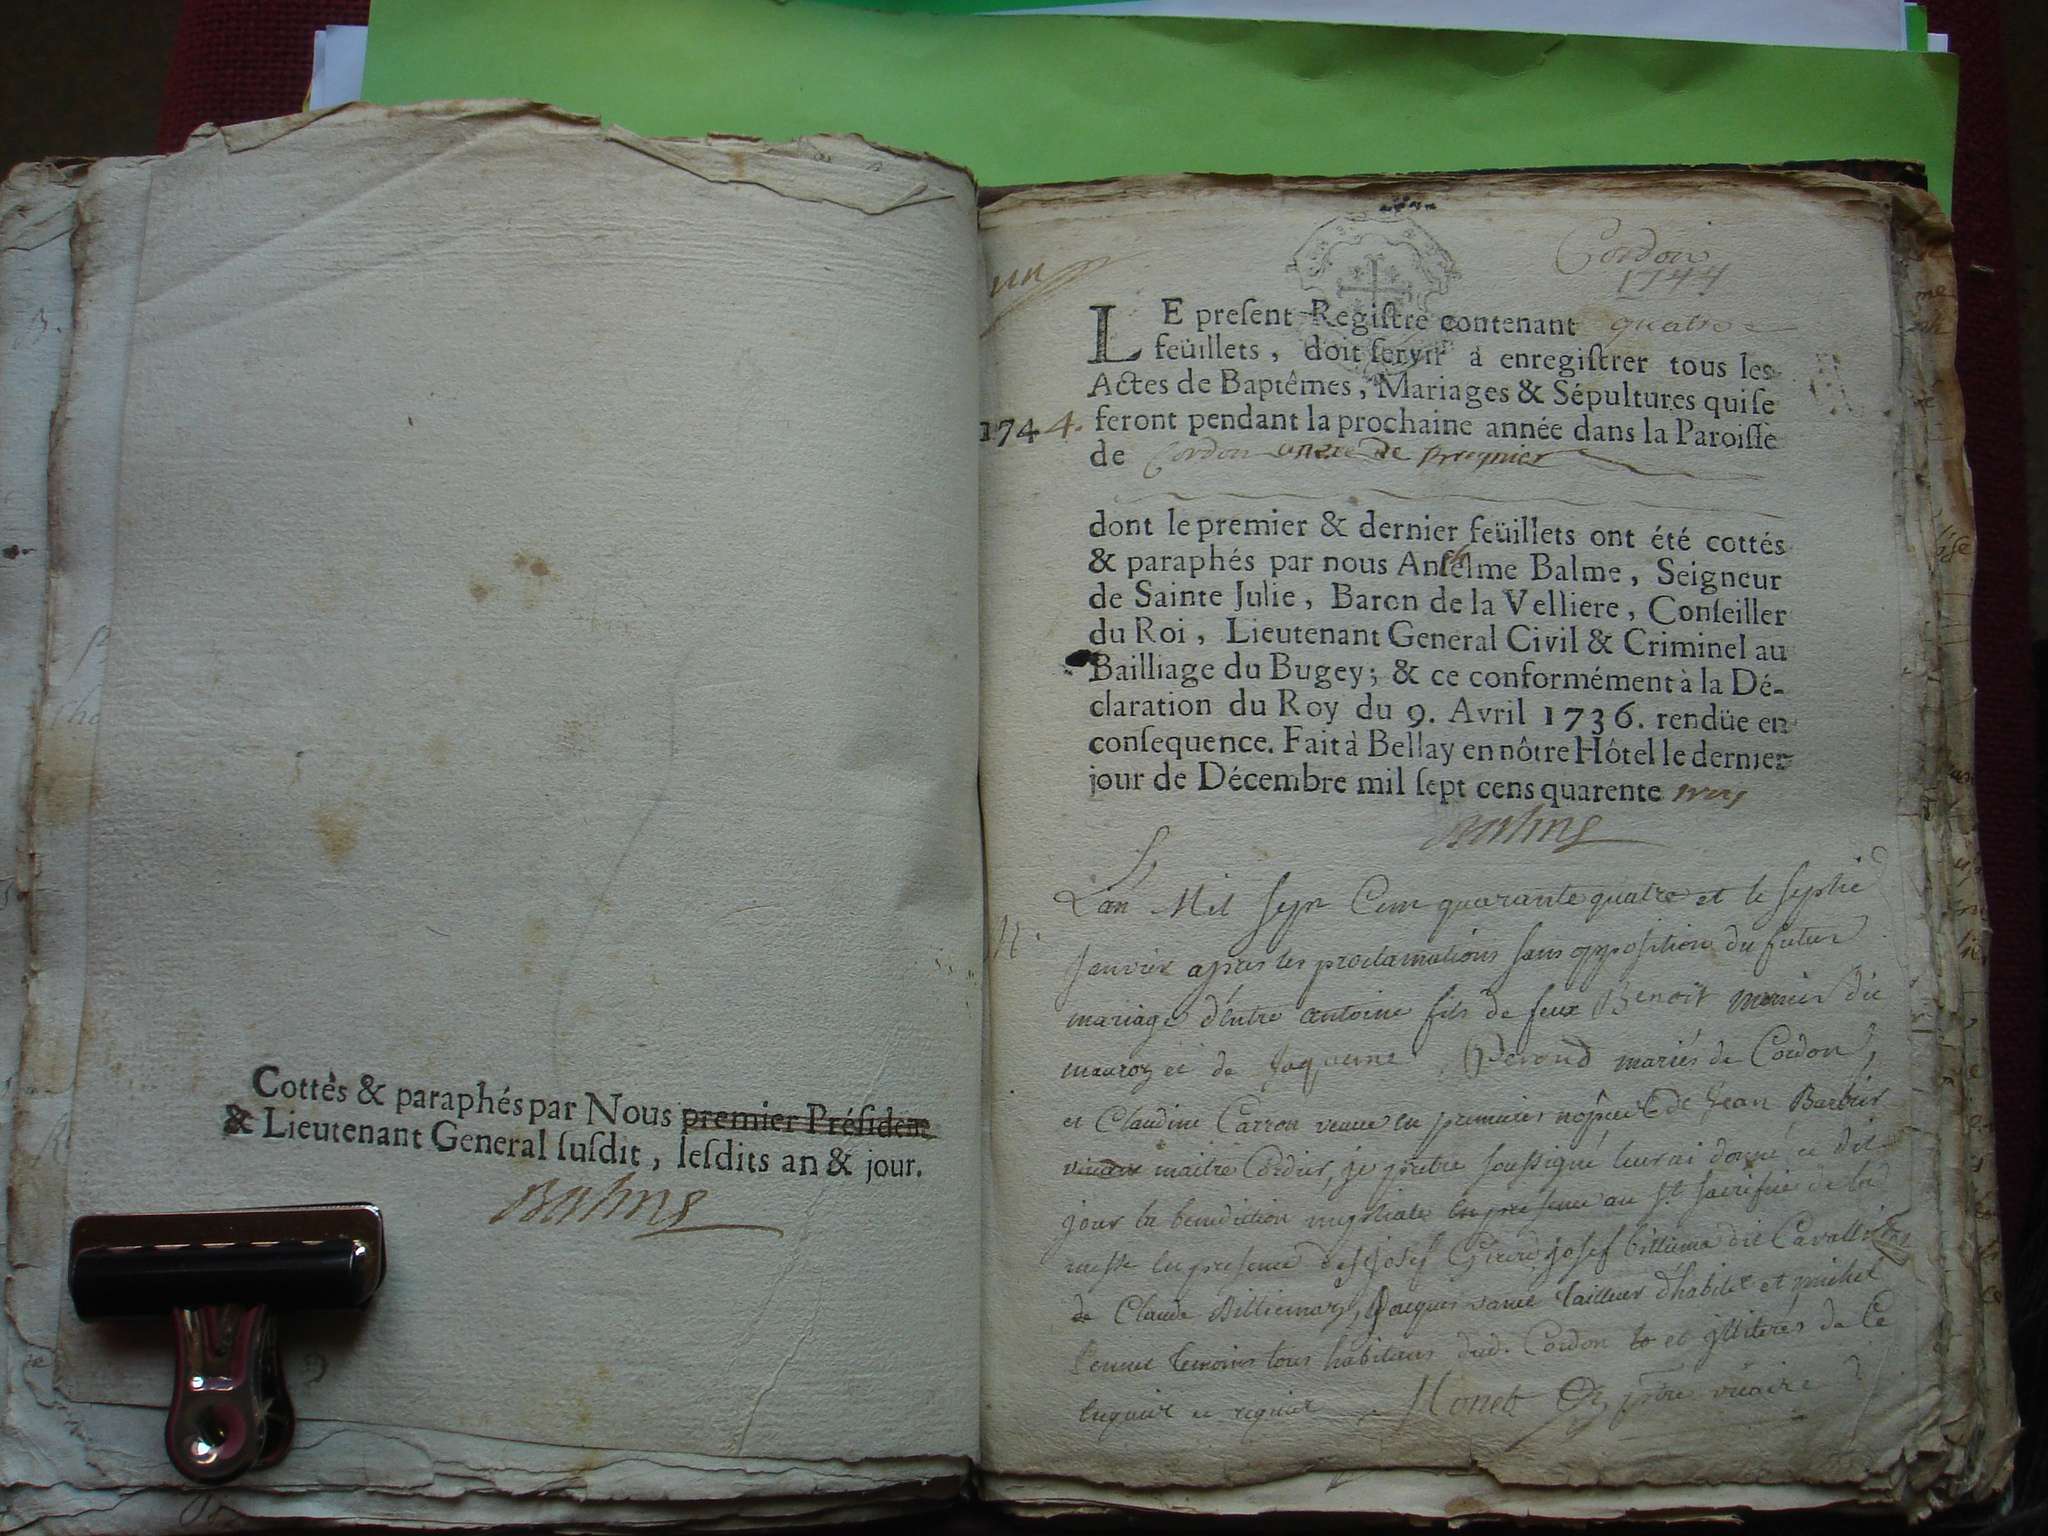 Cottés & paraphés par Nous premier Préſident
& Lieutenant General ſuſdit, leſdits an & jour.
Balme
Cordon
1744
LE preſent Regiſtre contenant quatre
feüillets, doit ſervir à enregiſtrer tous les
Actes de Baptêmes, Mariages & Sépultures qui ſe
1744. feront pendant la prochaine année dans la Paroiſſe
de Cordon de Bregnier
dont le premier & dernier feüillets ont été cottés
& paraphés par nous Anſelme Balme, Seigneur
de Sainte Julie, Baron de la Velliere, Conſeiller
du Roi, Lieutenant General Civil & Criminel au
Bailliage du Bugey; & ce conformément à la Dé-
claration du Roy du 9. Avril 1736. rendüe en
conſequence. Fait à Bellay en nôtre Hôtel le dernier
jour de Décembre mil ſept cens quarente troy
Balme
L'an Mil sept Cent quarante quatre et le septie
M.
janvier apres les proclamations sans opposition du futur
mariage d'entre antoine fils de feux Benoit dit
et de Perond mariés de Cordon,
et Claudine Carron veuve en premieres de Jean Barbier
maitre Cordier, je pretre soussigné leur ai donné ce dit
jour la benediction nuptiale au st sacrifice de la
messe en presence de josef josef dit
de Claude jacques tailleur d'habits et michel
temoins tous habitans dud. Cordon et illiterés de ce
enquis et requis Monet ptre vicaire